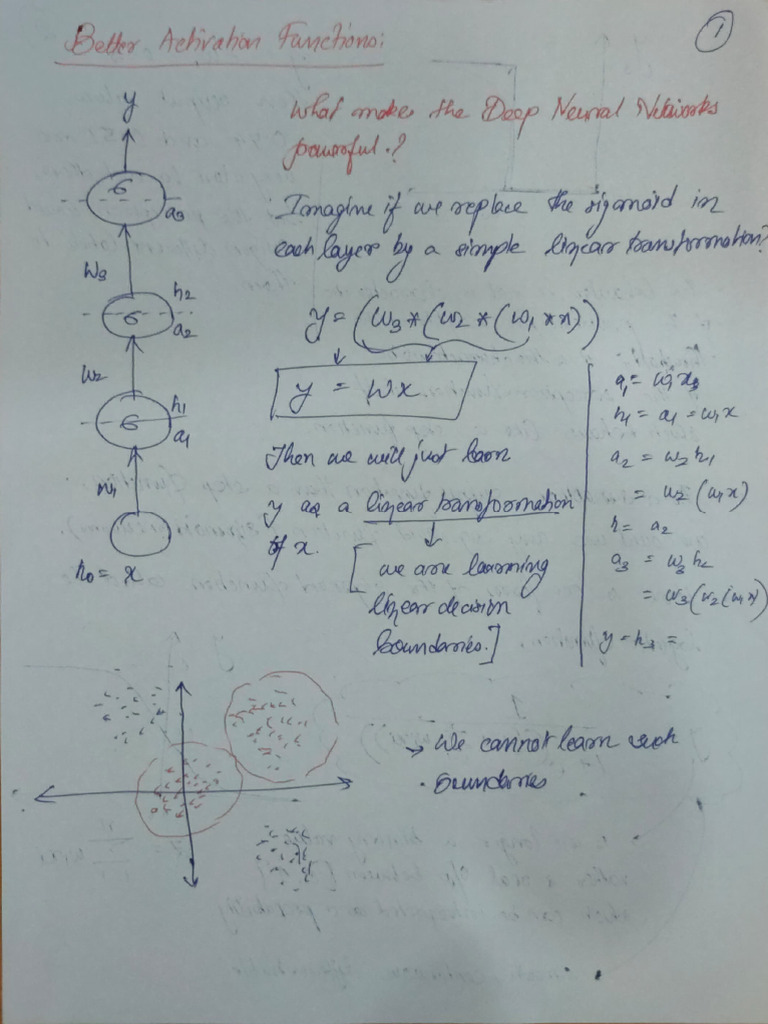 1
Better Activation Functions:
What makes the Deep Neural Networks
powerful.?
Imagine if we replace the sigmoid in
each layer by a simple linear transformation?
y
σ
a3
W3
h2
σ
a2
W2
h1
σ
a1
W1
h0 = x
y = (W3 * (W2 * (W1 * x)))
y = Wx
Then we will just learn
y as a linear transformation
of x.
[we are learning
linear decision
boundaries.]
h1 = a1 = W1x
a2 = W2 h1
= W2 (W1x)
h = a2
a3 = W3 h2
= W3(W2(W1x))
→ We cannot learn such
boundaries